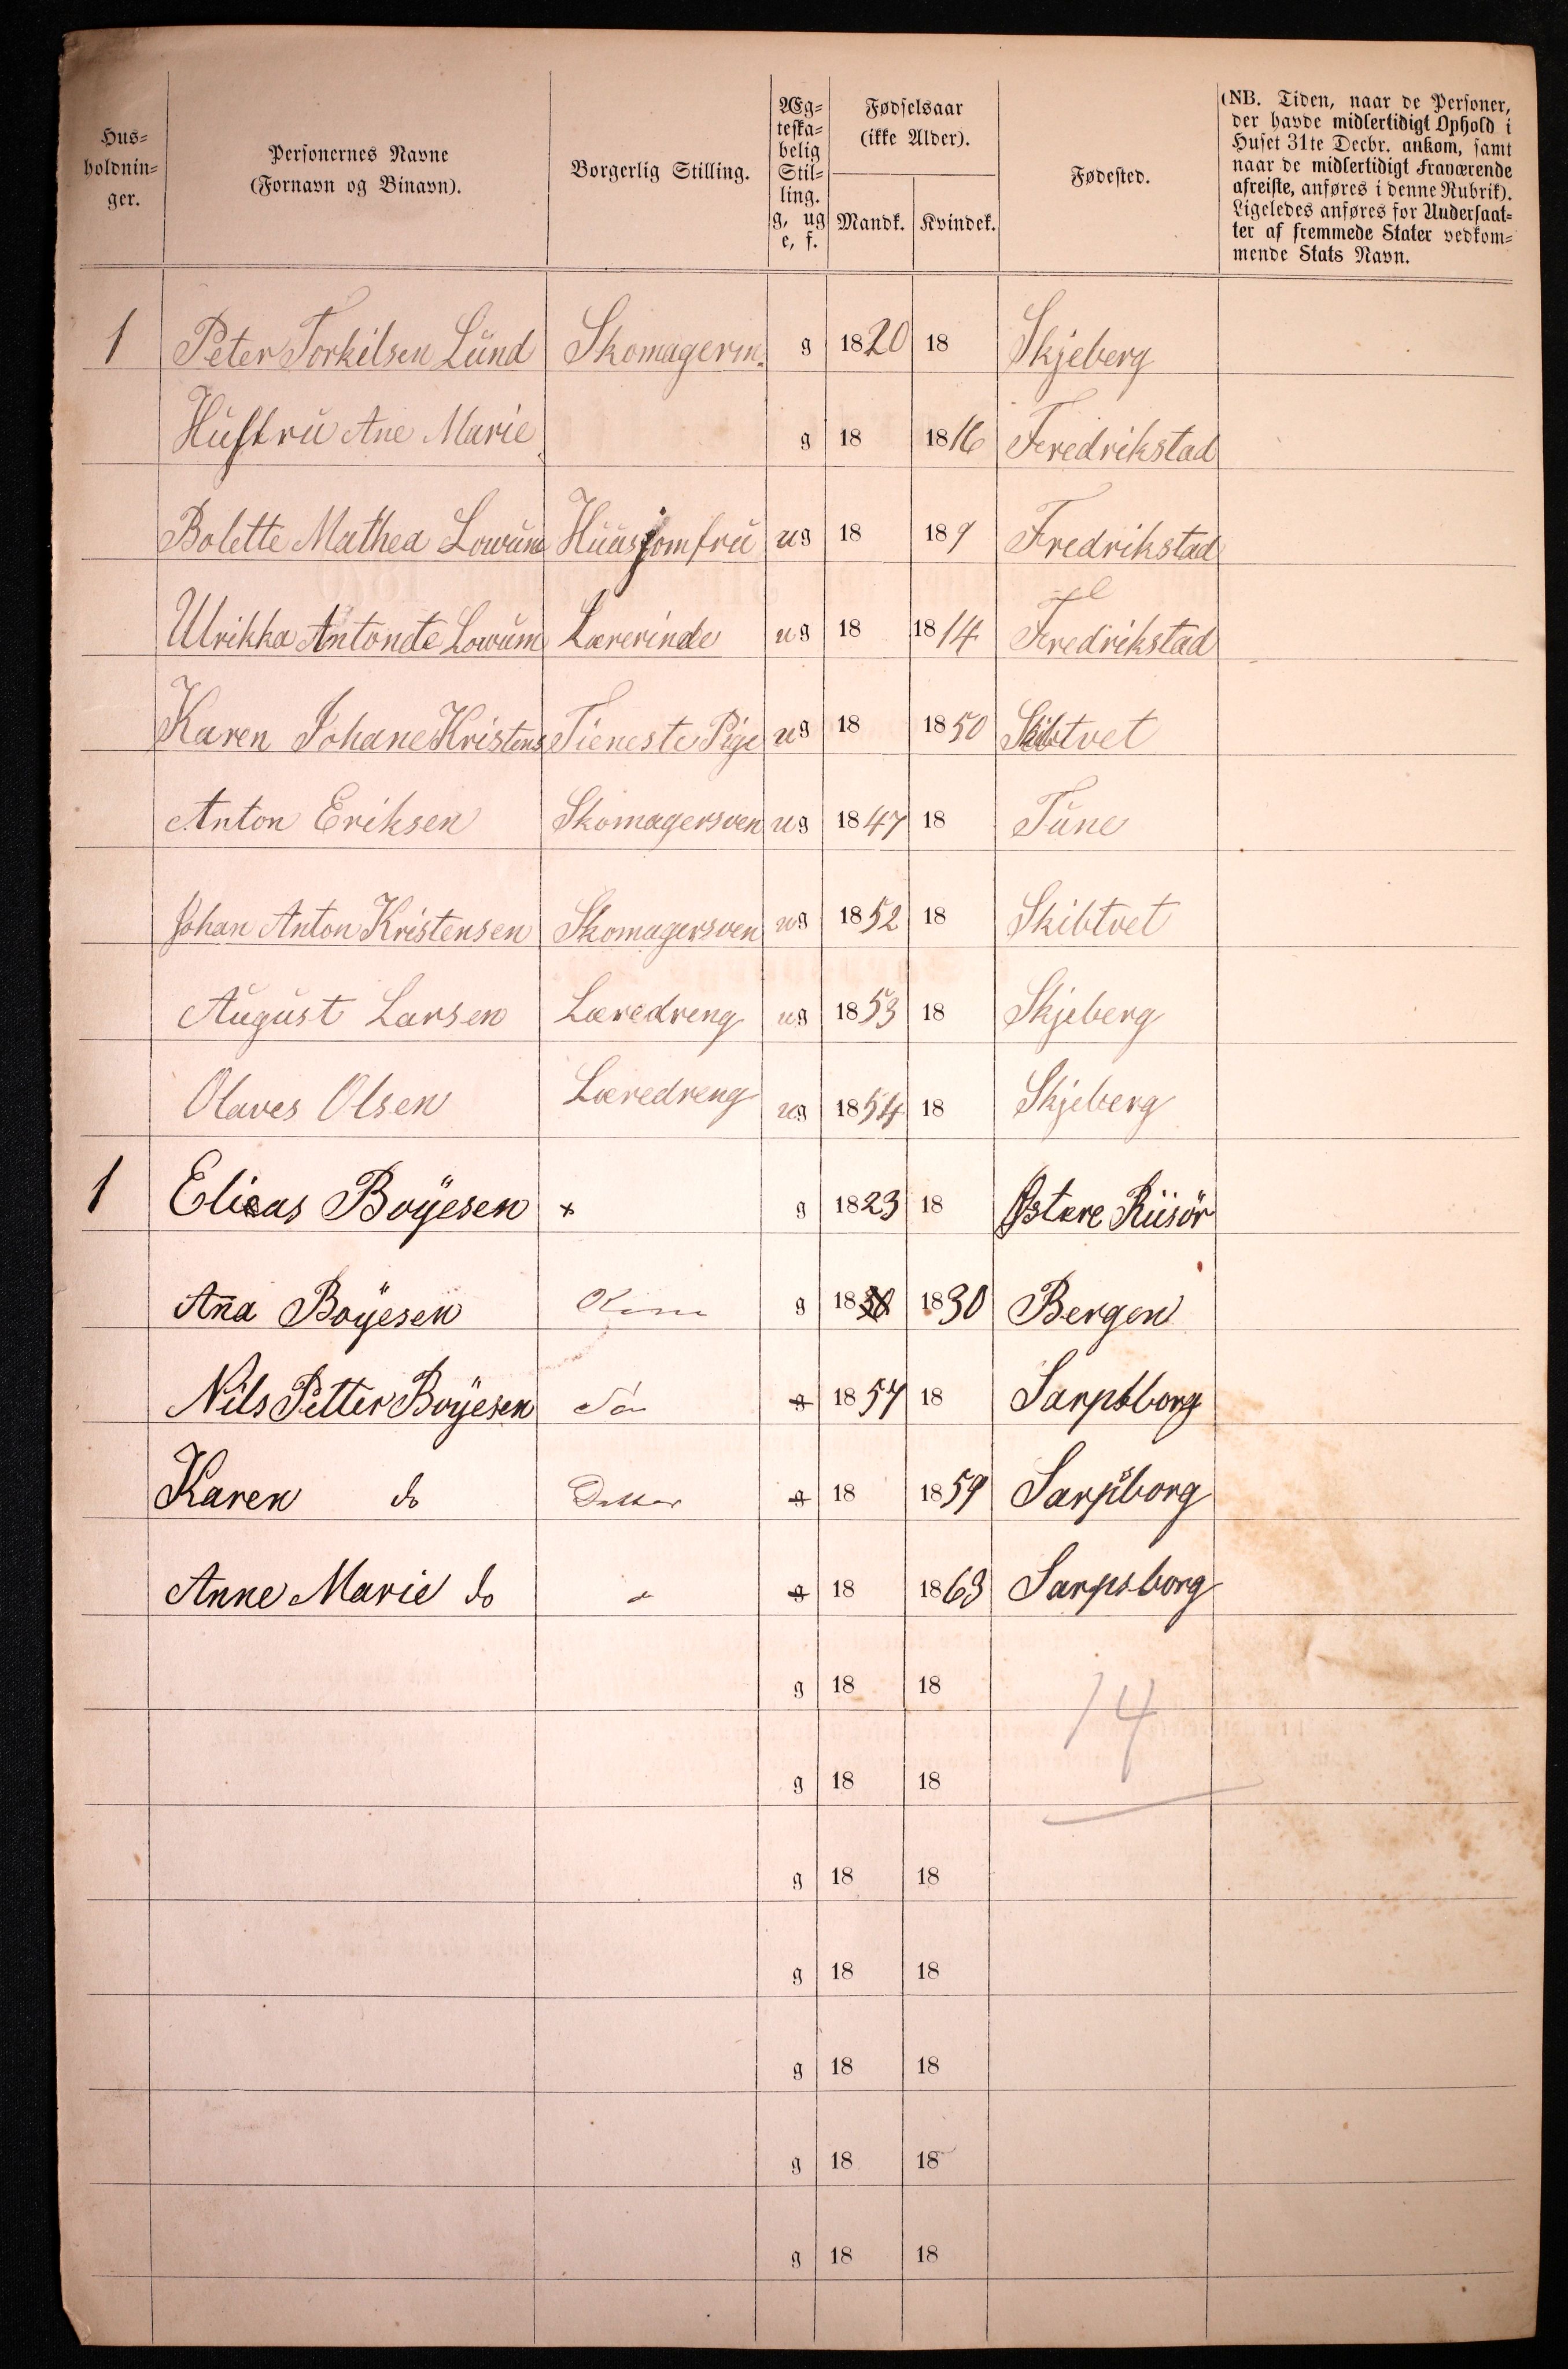 Hus=
holdnin=
ger.
Personernes Navne
(Fornavn og Binavn).
Borgerlig Stilling.
Æg=
teska=
belig
Stil=
ling.
g, ug
e, f.
Fødselsaar
(ikke Alder).
Mandk. Kvindek.
Fødested.
(NB. Tiden, naar de Personer,
der havde midlertidigt Ophold i
Huset 31te Decbr. ankom, samt
naar de midlertidigt Fraværende
afreiste, anføres i denne Rubrik).
Ligeledes anføres for Undersaat=
ter af fremmede Stater vedkom=
mende Stats Navn.
1 Peter Torkilsen Lund Skomagerm. g 1820 18 Skjeberg
Hustru Ane Marie g 18 1816 Fredrikstad
Bolette Mathea Lowum Huusjomfru ug 18 189 Fredrikstad
Ulrikka Antonete Lowum Lærerinde ug 18 1814 Fredrikstad
Karen Johane Kristens Tieneste Pige ug 18 1850 Skibtvet
Anton Eriksen Skomagersven ug 1847 18 Tune
Johan Anton Kristensen Skomagersven ug 1852 18 Skibtvet
August Larsen Læredreng ug 1853 18 Skjeberg
Olaves Olsen Læredreng ug 1854 18 Skjeberg
1 Elieas Boÿesen x g 1823 18 Østere Riisör
Aña Boÿesen Kone g 1830 1830 Bergen
Nils Petter Boÿesen Sön g 1857 18 Sarpsborg
Karen do Datter g 18 1859 Sarpsborg
Anne Marie do g 18 1863 Sarpsborg
g 18 18
14
g 18 18
g 18 18
g 18 18
g 18 18
g 18 18
g 18 18